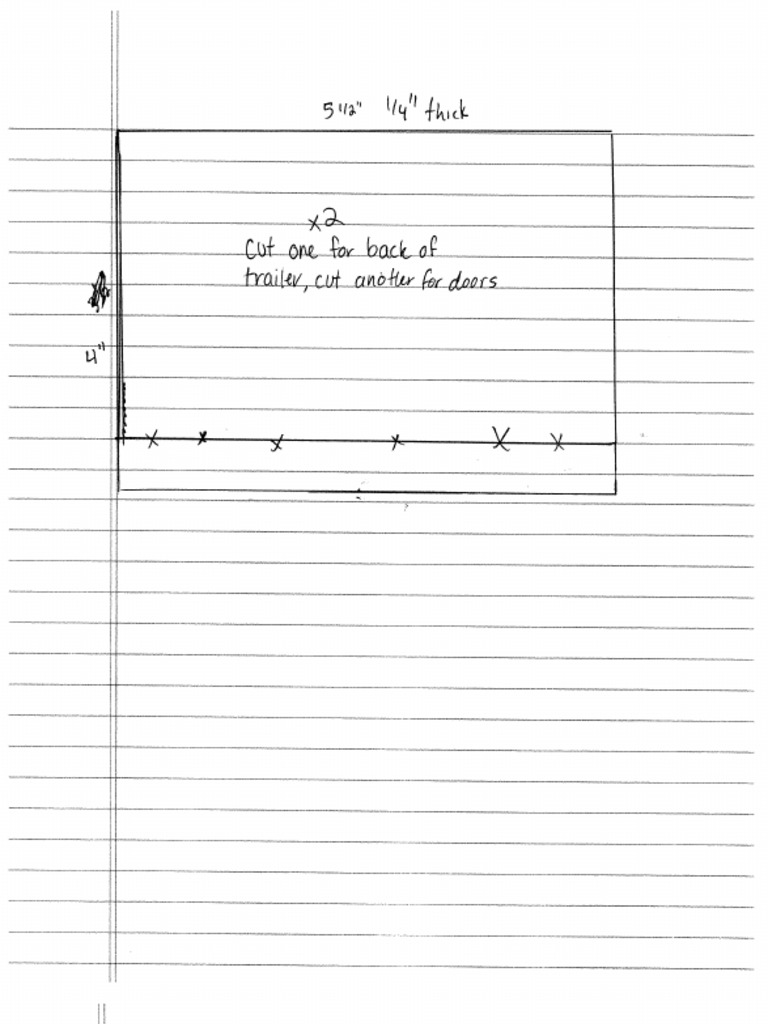 5 1/2" 1/4" thick
x2
Cut one for back of
trailer, cut another for doors
4"
x x x x x x